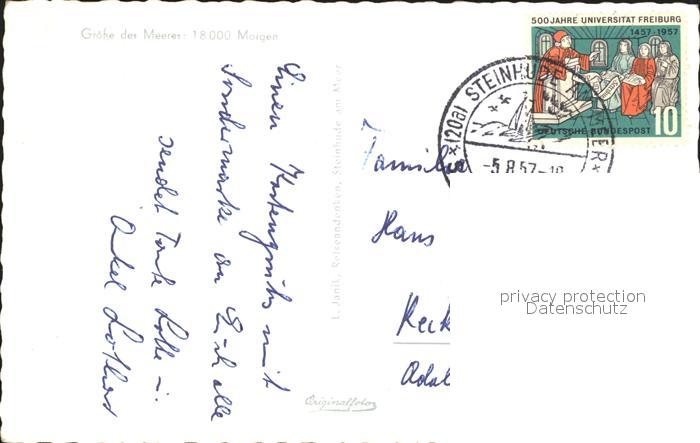 Größe des Meeres: 18 000 Morgen
Einen Kartengruß mit
Sondermarke an Euch alle
sendet Tante Lotte u.
Onkel Lothar
L. Janik, Reiseandenken, Steinhude am Meer
Originalfoto
500 JAHRE UNIVERSITÄT FREIBURG
1457·1957
DEUTSCHE BUNDESPOST
10
(20a) STEINHUDE
MEER
-5.8.57-
Familie
Hans
Keck
Adal
privacy protection
Datenschutz